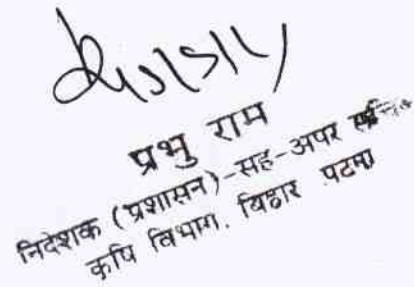 प्रभु राम
निदेशक (प्रशासन)-सह-अपर सचिव
कृषि विभाग. बिहार पटना